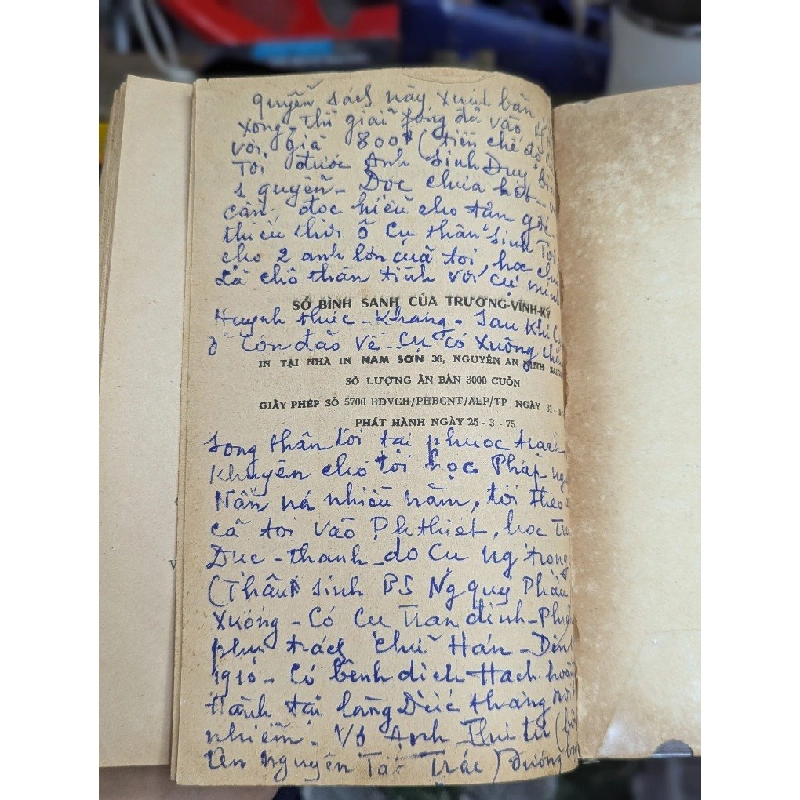 quyển sách này xuất bản
xong thì giải phóng đã vào
với giá 800đ (tiền chế độ
Tôi được Anh Sinh Duy
1 quyển - Đọc chưa hết -
cần, đọc hiểu cho tâm
thiếu thời ở Cụ thân sinh Tôi
cho 2 anh lớn của tôi học
Là chỗ thân tình với cụ
SỔ BÌNH SANH CỦA TRƯƠNG-VĨNH-KÝ
Huỳnh thúc-Kháng - Sau khi
ở Côn đảo về - Cụ có xuống
IN TẠI NHÀ IN NAM SƠN 36, NGUYỄN AN NINH
SỐ LƯỢNG ẤN BẢN 3000 CUỐN
GIẤY PHÉP SỐ 5701 BDVCH/PHBCNT/ALP/TP NGÀY
PHÁT HÀNH NGÀY 25 - 3 - 75
Song thân tôi tại phước trạch
Khuyên cho tôi học Pháp
Nấn ná nhiều năm, tôi theo
cả tôi vào Ph thiết, học
Dục-thanh do Cụ Ng trọng
(Thân sinh BS Ng quý Phầu
xướng - Có Cụ Trần đình-
phụ trách chữ Hán - Đến
1910 - Có bệnh dịch Hạch
Hành tại làng Đức thắng
nhiễm. Vô Anh Thư
tên nguyễn Tất Trác) Đường